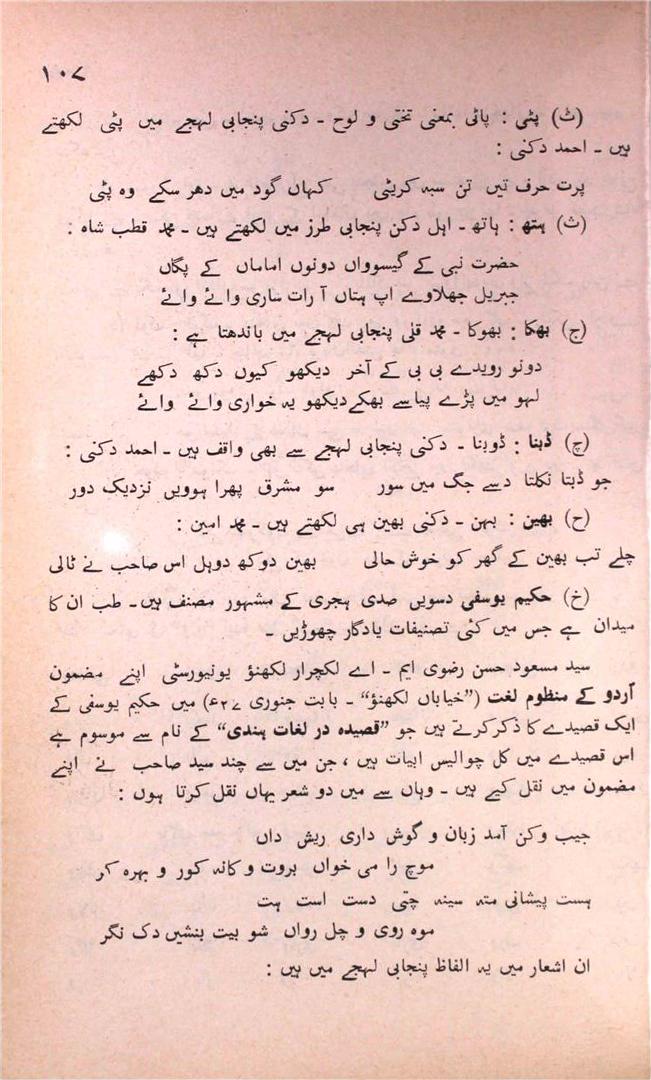 ۱۰۷
(ٹ) پٹی : پاٹی بمعنی تختی و لوح ۔ دکنی پنجابی لہجے میں پٹی لکھتے
ہیں ۔ احمد دکنی :
پرت حرف تیں تن سبہ کریٹی کہاں گود میں دھر سکے وہ پٹی
(ث) ہتھ : ہاتھ ۔ اہل دکن پنجابی طرز میں لکھتے ہیں ۔ محمد قطب شاہ :
حضرت نبی کے گیسوواں دونوں اماماں کے پگاں
جبریل جھلاوے اپ ہتاں آ رات ساری وائے وائے
(ج) بھکا : بھوکا ۔ محمد قلی پنجابی لہجے میں باندھتا ہے :
دونو رویدے بی بی کے آخر دیکھو کیوں دکھ دکھے
لہو میں پڑے پیاسے بھکے دیکھو یہ خواری وائے وائے
(چ) ڈبنا : ڈوبنا ۔ دکنی پنجابی لہجے سے بھی واقف ہیں ۔ احمد دکنی :
جو ڈبتا نکلتا دسے جگ میں سور سو مشرق پھرا ہوویں نزدیک دور
(ح) بھین : بہن ۔ دکنی بھین ہی لکھتے ہیں ۔ محمد امین :
چلے تب بھین کے گھر کو خوش حالی بھین دوکھ دوہل اس صاحب نے ٹالی
(خ) حکیم یوسفی دسویں صدی ہجری کے مشہور مصنف ہیں ۔ طب ان کا
میدان ہے جس میں کئی تصنیفات یادگار چھوڑیں ۔
سید مسعود حسن رضوی ایم ۔ اے لکچرار لکھنؤ یونیورسٹی اپنے مضمون
اُردو کے منظوم لغت (”خیاباں لکھنؤ“ ۔ بابت جنوری ۲۷ء) میں حکیم یوسفی کے
ایک قصیدے کا ذکر کرتے ہیں جو ”قصیدہ در لغات ہندی“ کے نام سے موسوم ہے
اس قصیدے میں کل چوالیس ابیات ہیں ، جن میں سے چند سید صاحب نے اپنے
مضمون میں نقل کیے ہیں ۔ وہاں سے میں دو شعر یہاں نقل کرتا ہوں :
جیب وکن آمد زبان و گوش داری ریش داں
موچ را می خواں بروت و کانہ کور و بہرہ کر
ہست پیشانی متہ سینہ چتی دست است ہت
موہ روی و چل رواں شو بیت بنشیں دک نگر
ان اشعار میں یہ الفاظ پنجابی لہجے میں ہیں :